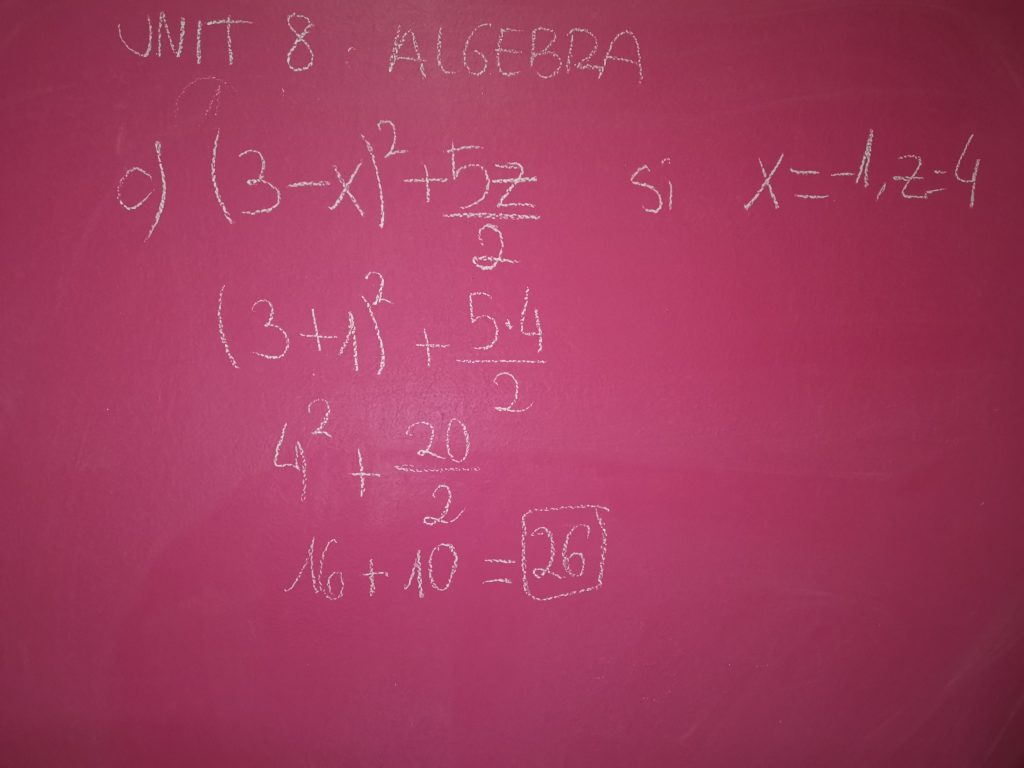 UNIT 8. ALGEBRA
c) (3-x)² + 5z/2 si x=-1, z=4
(3+1)² + 5·4/2
4² + 20/2
16 + 10 = 26